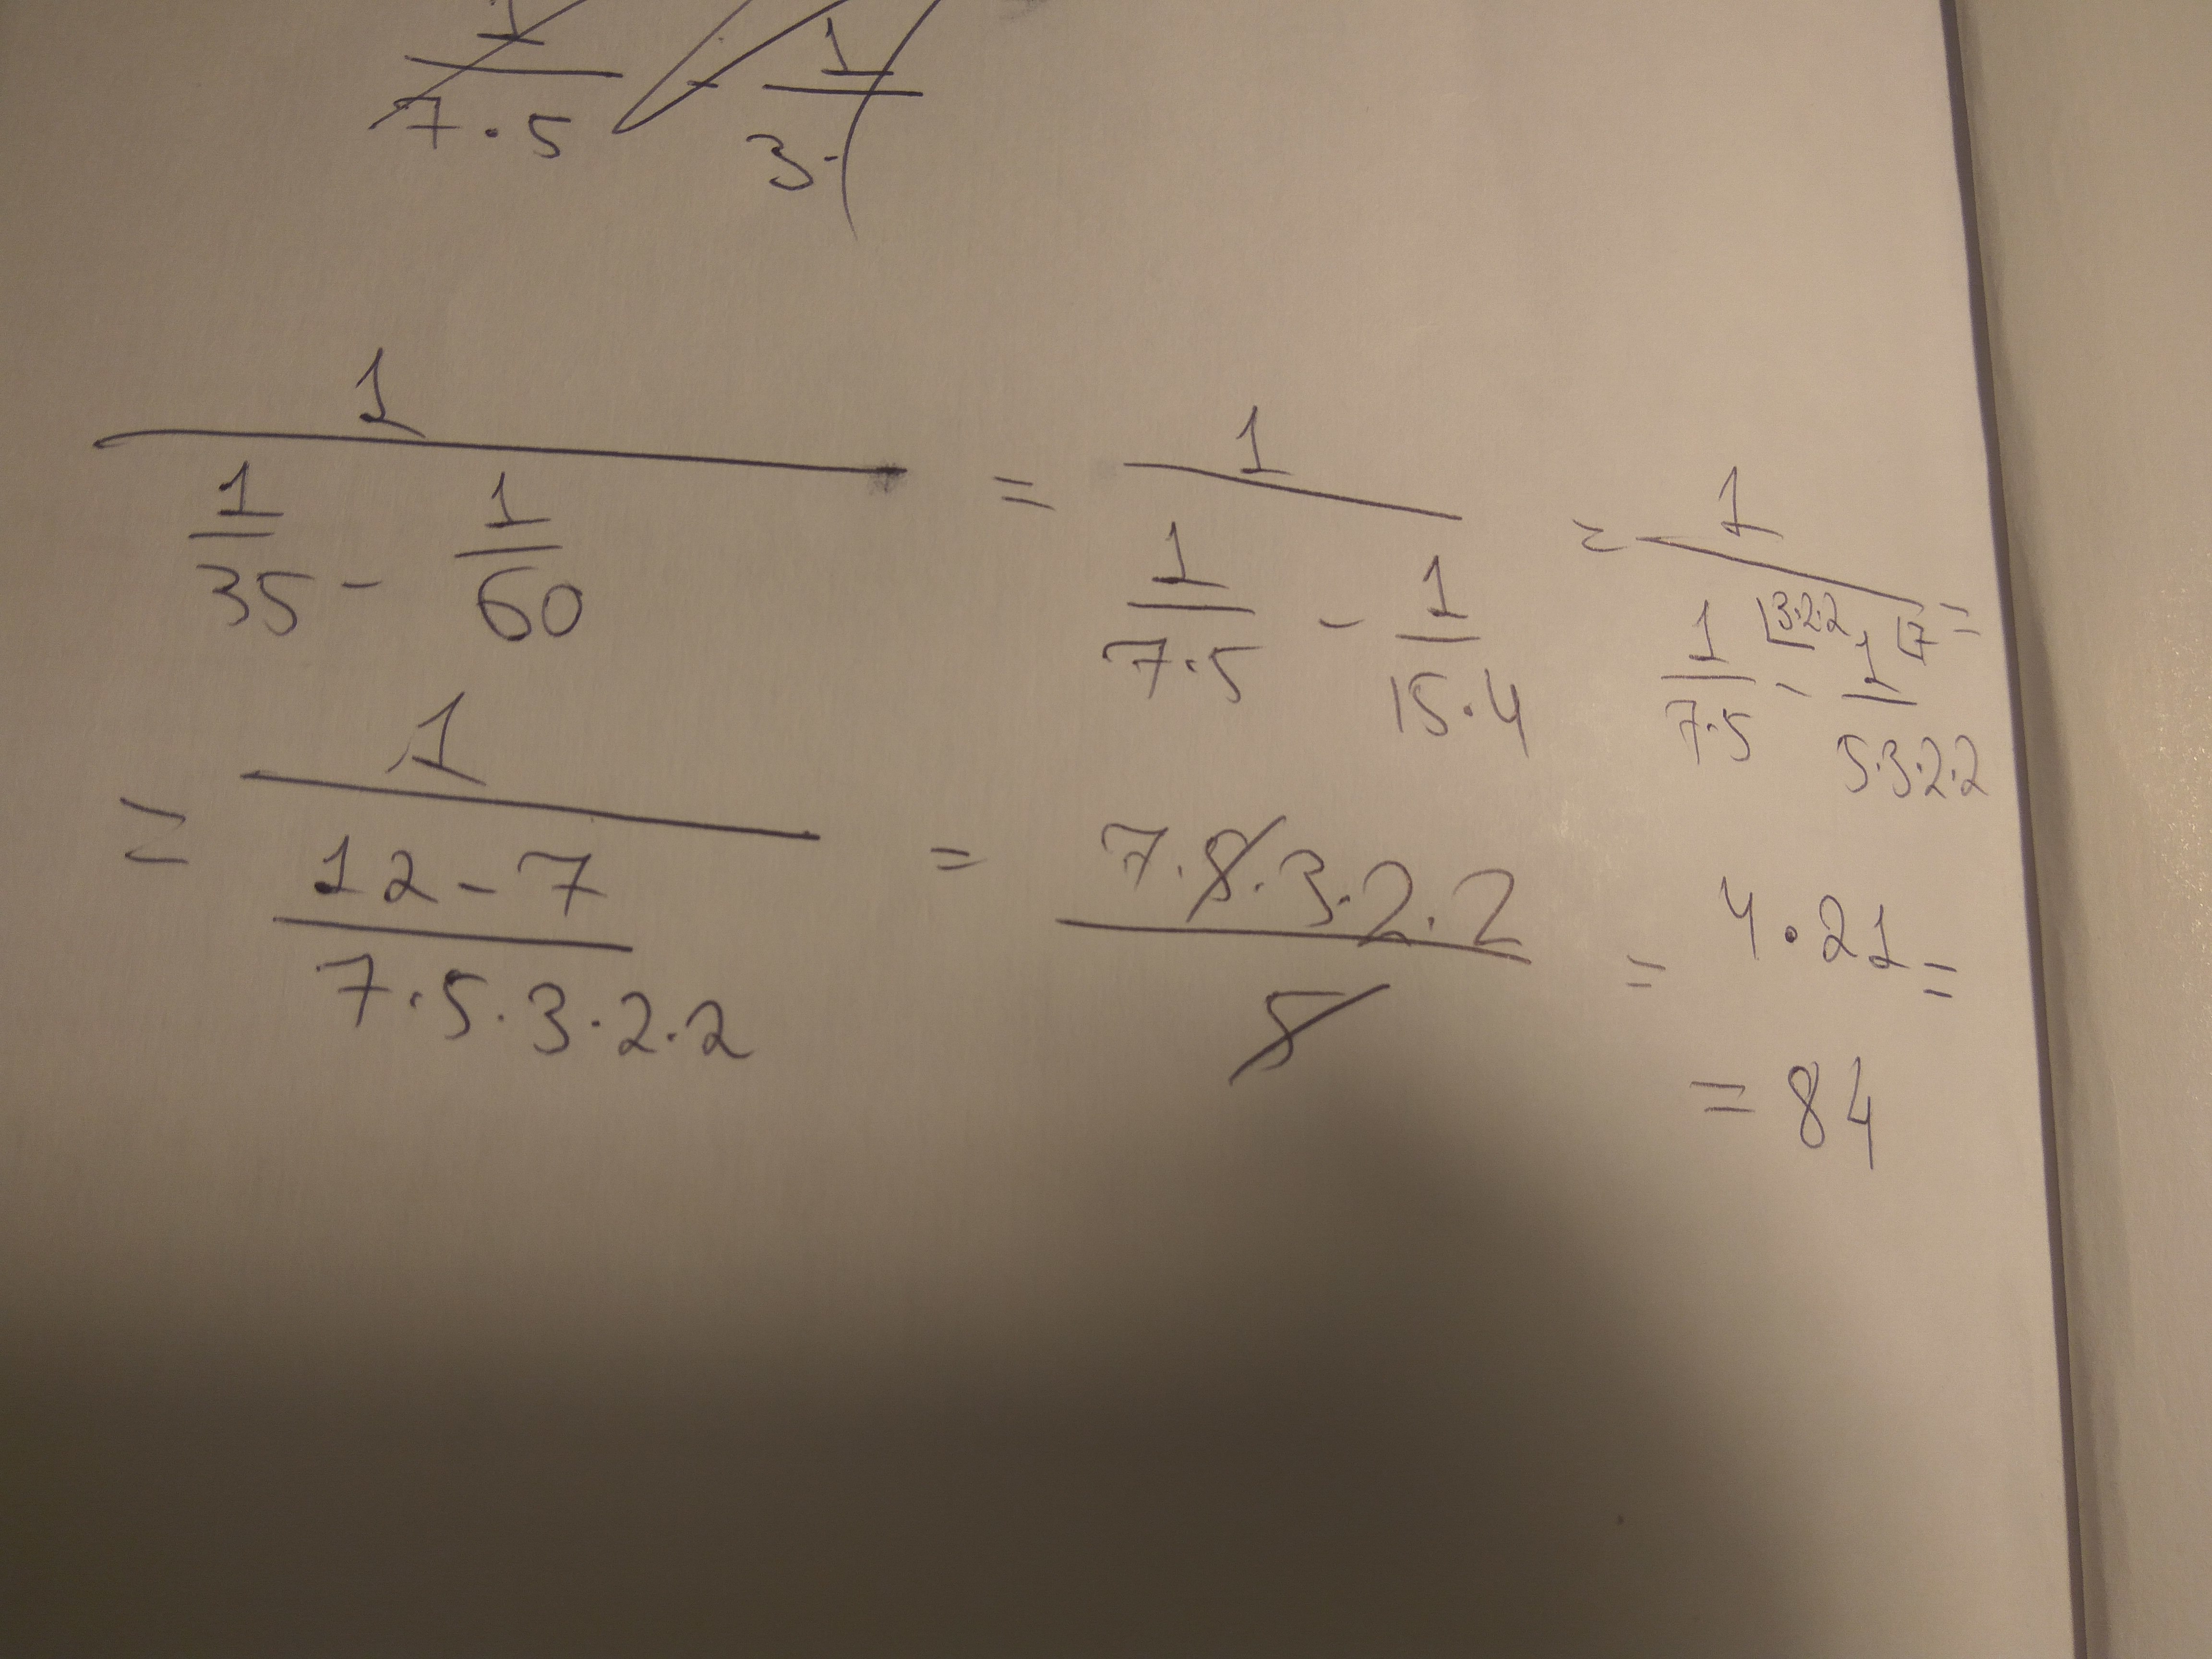 1/(7·5) - 1/(3·
1/(1/35 - 1/60) = 1/(1/(7·5) - 1/(15·4)) = 1/(1/(7·5) ⌊3·2·2 - 1/(5·3·2·2) ⌊7) =
= 1/((12-7)/(7·5·3·2·2)) = (7·5·3·2·2)/5 = 4·21 =
= 84